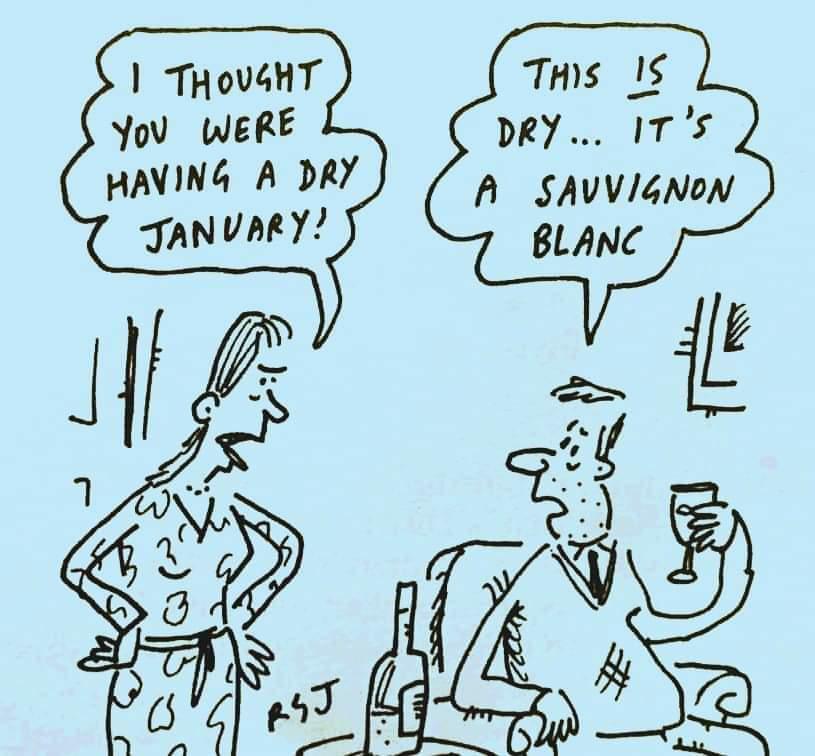 I THOUGHT
YOU WERE
HAVING A DRY
JANUARY!
THIS IS
DRY... IT'S
A SAUVIGNON
BLANC
RGJ